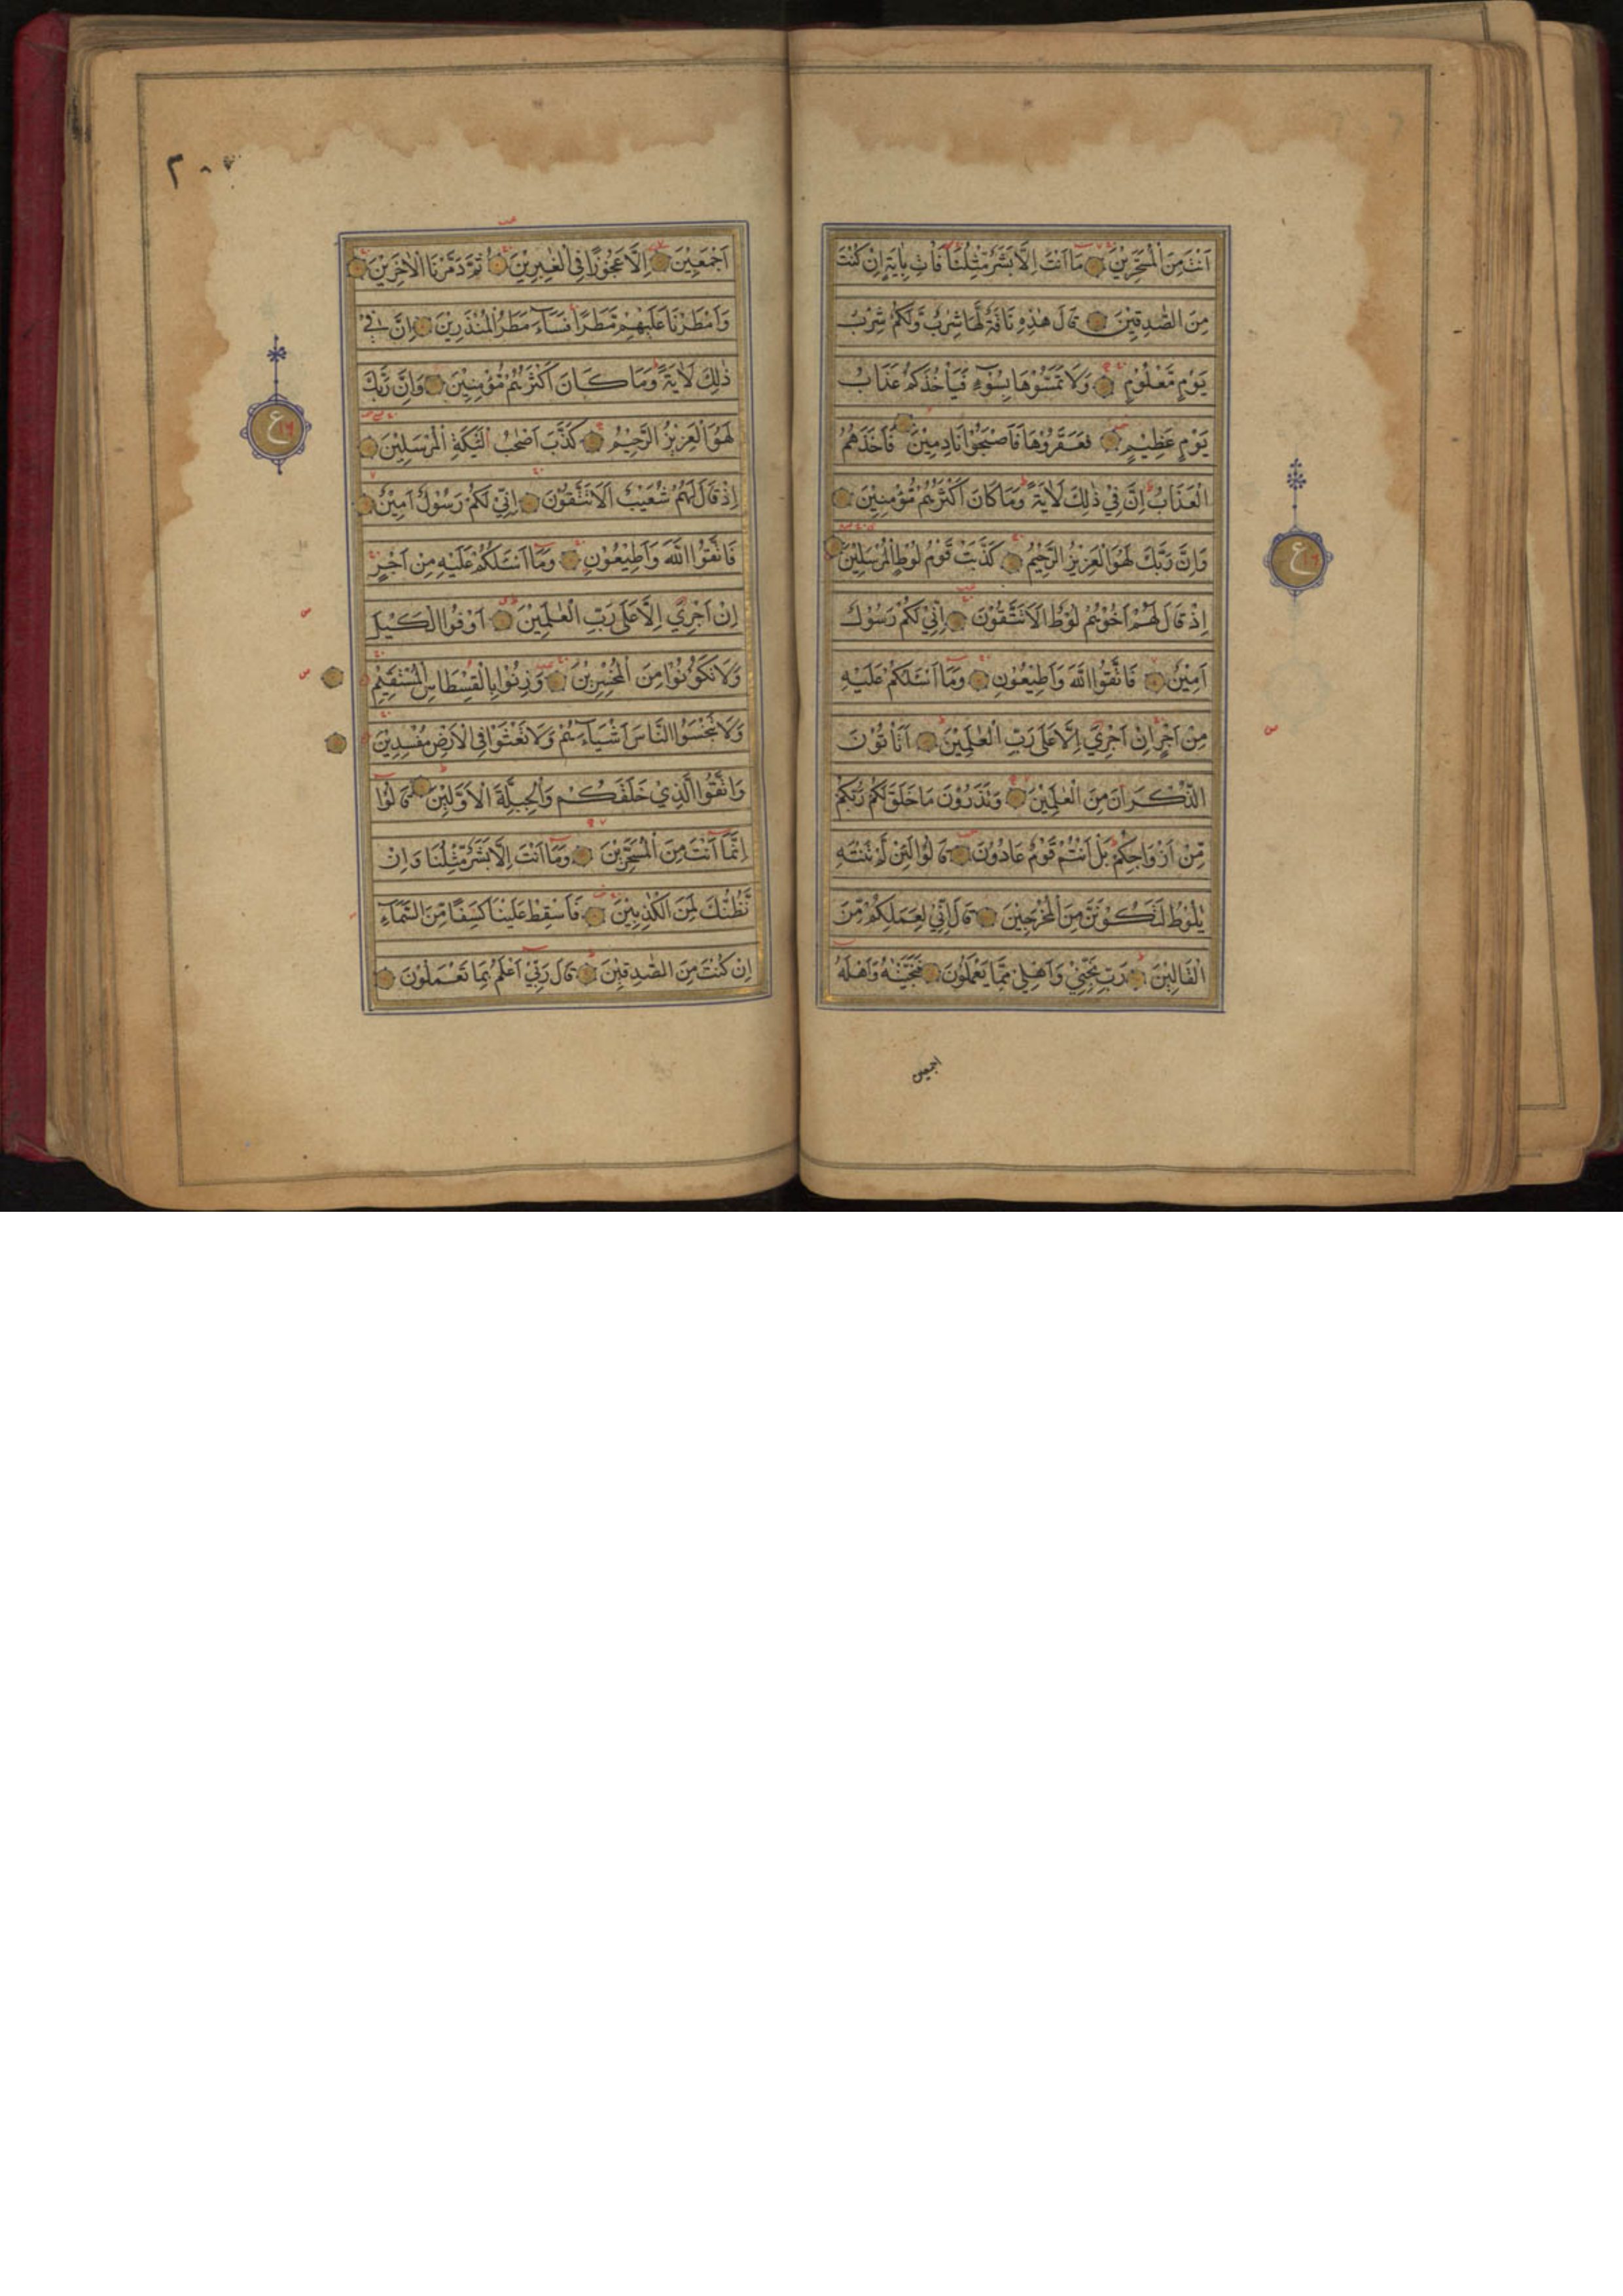 اَنْتَ مِنَ الْمُسَحَّرِيْنَ مَا اَنْتَ اِلَّا بَشَرٌ مِّثْلُنَا فَأْتِ بِاٰيَةٍ اِنْ كُنْتَ
مِنَ الصّٰدِقِيْنَ قَالَ هٰذِهٖ نَاقَةٌ لَّهَا شِرْبٌ وَّلَكُمْ شِرْبُ
يَوْمٍ مَّعْلُوْمٍ وَلَا تَمَسُّوْهَا بِسُوْٓءٍ فَيَأْخُذَكُمْ عَذَابُ
يَوْمٍ عَظِيْمٍ فَعَقَرُوْهَا فَاَصْبَحُوْا نَادِمِيْنَ فَاَخَذَهُمُ
الْعَذَابُ اِنَّ فِيْ ذٰلِكَ لَاٰيَةً وَمَا كَانَ اَكْثَرُهُمْ مُّؤْمِنِيْنَ
وَاِنَّ رَبَّكَ لَهُوَ الْعَزِيْزُ الرَّحِيْمُ كَذَّبَتْ قَوْمُ لُوْطِ الْمُرْسَلِيْنَ
اِذْ قَالَ لَهُمْ اَخُوْهُمْ لُوْطٌ اَلَا تَتَّقُوْنَ اِنِّيْ لَكُمْ رَسُوْلٌ
اَمِيْنٌ فَاتَّقُوا اللّٰهَ وَاَطِيْعُوْنِ وَمَآ اَسْـَٔلُكُمْ عَلَيْهِ
مِنْ اَجْرٍ اِنْ اَجْرِيَ اِلَّا عَلٰى رَبِّ الْعٰلَمِيْنَ اَتَأْتُوْنَ
الذُّكْرَانَ مِنَ الْعٰلَمِيْنَ وَتَذَرُوْنَ مَا خَلَقَ لَكُمْ رَبُّكُمْ
مِّنْ اَزْوَاجِكُمْ بَلْ اَنْتُمْ قَوْمٌ عَادُوْنَ قَالُوْا لَئِنْ لَّمْ تَنْتَهِ
يٰلُوْطُ لَتَكُوْنَنَّ مِنَ الْمُخْرَجِيْنَ قَالَ اِنِّيْ لِعَمَلِكُمْ مِّنَ
الْقَالِيْنَ رَبِّ نَجِّنِيْ وَاَهْلِيْ مِمَّا يَعْمَلُوْنَ فَنَجَّيْنٰهُ وَاَهْلَهٗٓ
اجمعين
ع
اَجْمَعِيْنَ اِلَّا عَجُوْزًا فِي الْغٰبِرِيْنَ ثُمَّ دَمَّرْنَا الْاٰخَرِيْنَ
وَاَمْطَرْنَا عَلَيْهِمْ مَّطَرًا فَسَآءَ مَطَرُ الْمُنْذَرِيْنَ اِنَّ فِيْ
ذٰلِكَ لَاٰيَةً وَمَا كَانَ اَكْثَرُهُمْ مُّؤْمِنِيْنَ وَاِنَّ رَبَّكَ
لَهُوَ الْعَزِيْزُ الرَّحِيْمُ كَذَّبَ اَصْحٰبُ لْـَٔيْكَةِ الْمُرْسَلِيْنَ
اِذْ قَالَ لَهُمْ شُعَيْبٌ اَلَا تَتَّقُوْنَ اِنِّيْ لَكُمْ رَسُوْلٌ اَمِيْنٌ
فَاتَّقُوا اللّٰهَ وَاَطِيْعُوْنِ وَمَآ اَسْـَٔلُكُمْ عَلَيْهِ مِنْ اَجْرٍ
اِنْ اَجْرِيَ اِلَّا عَلٰى رَبِّ الْعٰلَمِيْنَ اَوْفُوا الْكَيْلَ
وَلَا تَكُوْنُوْا مِنَ الْمُخْسِرِيْنَ وَزِنُوْا بِالْقِسْطَاسِ الْمُسْتَقِيْمِ
وَلَا تَبْخَسُوا النَّاسَ اَشْيَآءَهُمْ وَلَا تَعْثَوْا فِي الْاَرْضِ مُفْسِدِيْنَ
وَاتَّقُوا الَّذِيْ خَلَقَكُمْ وَالْجِبِلَّةَ الْاَوَّلِيْنَ قَالُوْٓا
اِنَّمَآ اَنْتَ مِنَ الْمُسَحَّرِيْنَ وَمَآ اَنْتَ اِلَّا بَشَرٌ مِّثْلُنَا وَاِنْ
نَّظُنُّكَ لَمِنَ الْكٰذِبِيْنَ فَاَسْقِطْ عَلَيْنَا كِسَفًا مِّنَ السَّمَآءِ
اِنْ كُنْتَ مِنَ الصّٰدِقِيْنَ قَالَ رَبِّيْٓ اَعْلَمُ بِمَا تَعْمَلُوْنَ
ع